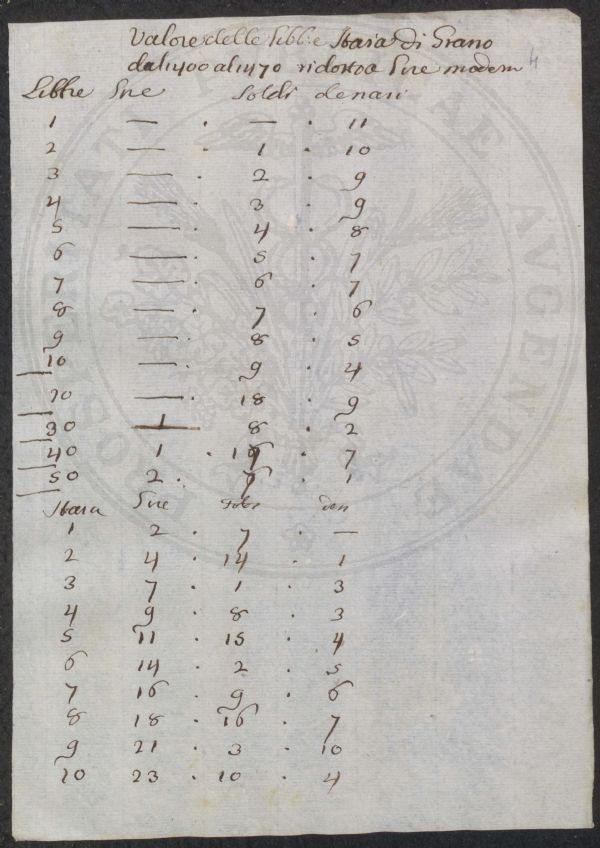 Valore delle Libb:e Staia di Grano
dal 1400 al 1470 ridotto a Lire modern 4
Libbre Lire Soldi denari
1 — . — . 11
2 — . 1 . 10
3 — . 2 . 9
4 — . 3 . 9
5 — . 4 . 8
6 — . 5 . 7
7 — . 6 . 7
8 — . 7 . 6
9 — . 8 . 5
10 — . 9 . 4
20 — . 18 . 9
30 1 8 . 2
40 1 . 7
50 2 . 1
Staia Lire Soldi den
1 2 . 7 . —
2 4 . 14 . 1
3 7 . 1 . 3
4 9 . 8 . 3
5 11 . 15 . 4
6 14 . 2 . 5
7 16 . 9 . 6
8 18 . 16 . 7
9 21 . 3 . 10
10 23 . 10 . 4